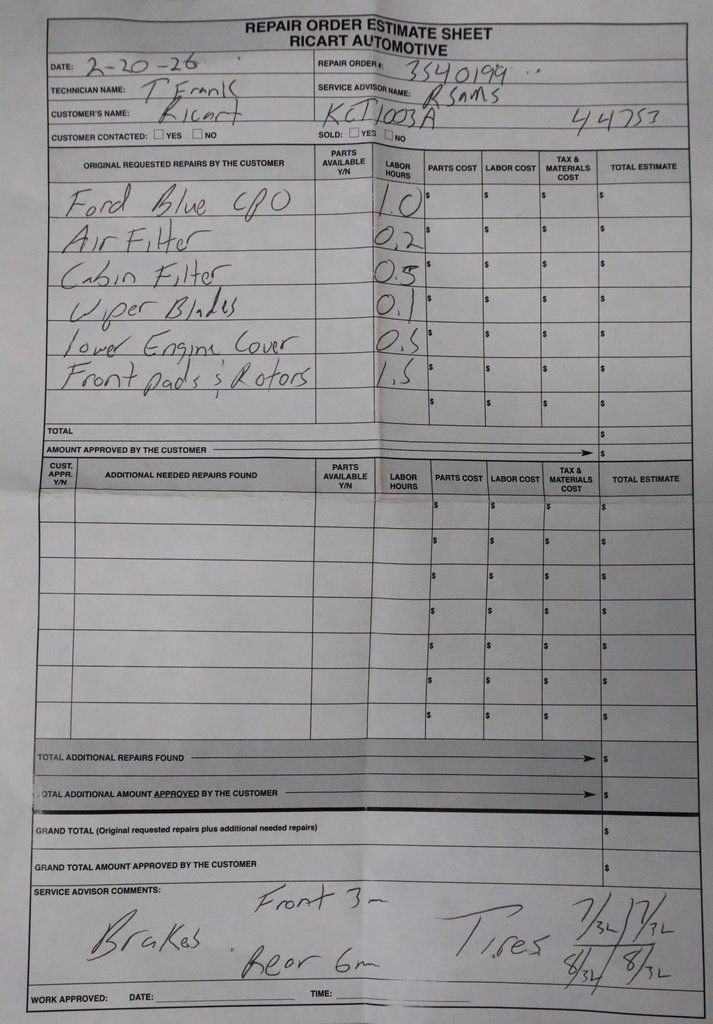 REPAIR ORDER ESTIMATE SHEET
RICART AUTOMOTIVE
DATE: 2-20-26 REPAIR ORDER#: 3540199
TECHNICIAN NAME: T Frank SERVICE ADVISOR NAME: R SAMS
CUSTOMER'S NAME: Ricart KCT1003A 44753
CUSTOMER CONTACTED: ☐ YES ☐ NO SOLD: ☐ YES ☐ NO
ORIGINAL REQUESTED REPAIRS BY THE CUSTOMER PARTS AVAILABLE Y/N LABOR HOURS PARTS COST LABOR COST TAX & MATERIALS COST TOTAL ESTIMATE
Ford Blue CPO 1.0 $ $ $ $
Air Filter 0.2 $ $ $ $
Cabin Filter 0.5 $ $ $ $
Wiper Blades 0.1 $ $ $ $
lower Engine Cover 0.5 $ $ $ $
Front pads & Rotors 1.5 $ $ $ $
$ $ $ $
TOTAL $
AMOUNT APPROVED BY THE CUSTOMER $
CUST. APPR. Y/N ADDITIONAL NEEDED REPAIRS FOUND PARTS AVAILABLE Y/N LABOR HOURS PARTS COST LABOR COST TAX & MATERIALS COST TOTAL ESTIMATE
$ $ $ $
$ $ $ $
$ $ $ $
$ $ $ $
$ $ $ $
$ $ $ $
$ $ $ $
TOTAL ADDITIONAL REPAIRS FOUND $
TOTAL ADDITIONAL AMOUNT APPROVED BY THE CUSTOMER $
GRAND TOTAL (Original requested repairs plus additional needed repairs) $
GRAND TOTAL AMOUNT APPROVED BY THE CUSTOMER $
SERVICE ADVISOR COMMENTS:
Front 3m
Brakes Tires 7/32 7/32
Rear 6m 8/32 8/32
WORK APPROVED: DATE: TIME: